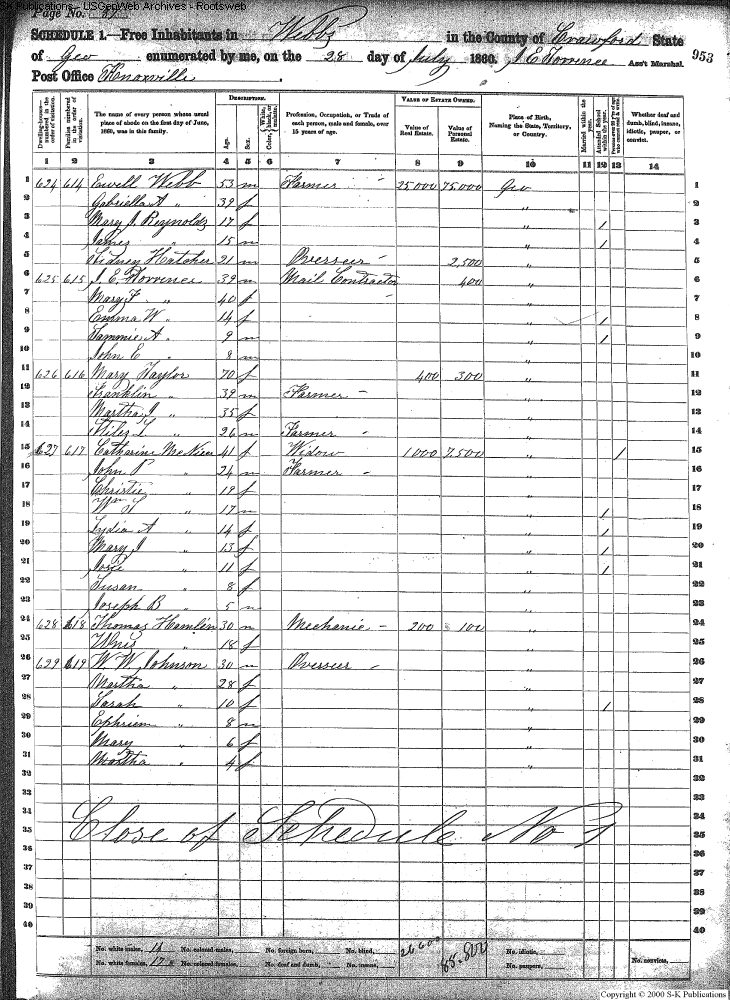 S-K Publications - USGenWeb Archives - Rootsweb
Page No.
SCHEDULE 1.—Free Inhabitants in Webbs in the County of Crawford State
of Geo enumerated by me, on the 28 day of July 1860. J. E. Torrence Ass't Marshal. 953
Post Office Knoxville.
DESCRIPTION. VALUE OF ESTATE OWNED.
Dwelling-houses—numbered in the order of visitation. Families numbered in the order of visitation. The name of every person whose usual place of abode on the first day of June, 1860, was in this family. Age. Sex. Color, White, black, or mulatto. Profession, Occupation, or Trade of each person, male and female, over 15 years of age. Value of Real Estate. Value of Personal Estate. Place of Birth, Naming the State, Territory, or Country. Married within the year. Attended School within the year. Persons over 20 y'rs of age who cannot read & write. Whether deaf and dumb, blind, insane, idiotic, pauper, or convict.
1 2 3 4 5 6 7 8 9 10 11 12 13 14
1 624 614 Ewell Webb 53 m Farmer 25,000 75,000 Geo 1
2 Gabriella A " 39 f " 2
3 Mary J. Reynolds 17 f " / 3
4 James " 15 m " / 4
5 Sidney Hatcher 21 m Overseer - 2,500 " 5
6 625 615 J. E. Torrence 39 m Mail Contractor 400 " 6
7 Mary F " 40 f - " 7
8 Emma W " 14 f " / 8
9 Tammie A " 9 m " / 9
10 John E " 8 m " 10
11 626 616 Mary Taylor 70 f 400 300 " 11
12 Franklin " 39 m Farmer - " 12
13 Martha J " 35 f " 13
14 L " 26 m Farmer - " 14
15 627 617 Catharine McNiece 41 f Widow 1000 7,500 " / 15
16 John P " 24 m Farmer - " 16
17 Christie " 19 f " 17
18 " 17 m " / 18
19 Lydia A " 14 f " / 19
20 Mary J " 13 f " / 20
21 Josie " 11 f " / 21
22 Susan " 8 f " 22
23 Joseph B " 5 m " 23
24 628 618 Thomas Hamlin 30 m Mechanic - 200 100 " 24
25 Unis " 18 f " 25
26 629 619 W. W. Johnson 30 m Overseer - " 26
27 Martha " 28 f " 27
28 Sarah " 10 f " / 28
29 Ephriem " 8 m " 29
30 Mary " 6 f " 30
31 Martha " 4 f " 31
32 32
33 33
34 34
35 Close of Schedule No 1 35
36 36
37 37
38 38
39 39
40 40
No. white males, 14 No. colored males, No. foreign born, No. blind, 26600 88.800 No. idiotic,
No. white females, 17 No. colored females, No. deaf and dumb, No. insane, No. paupers, No. convicts,
Copyright © 2000 S-K Publications